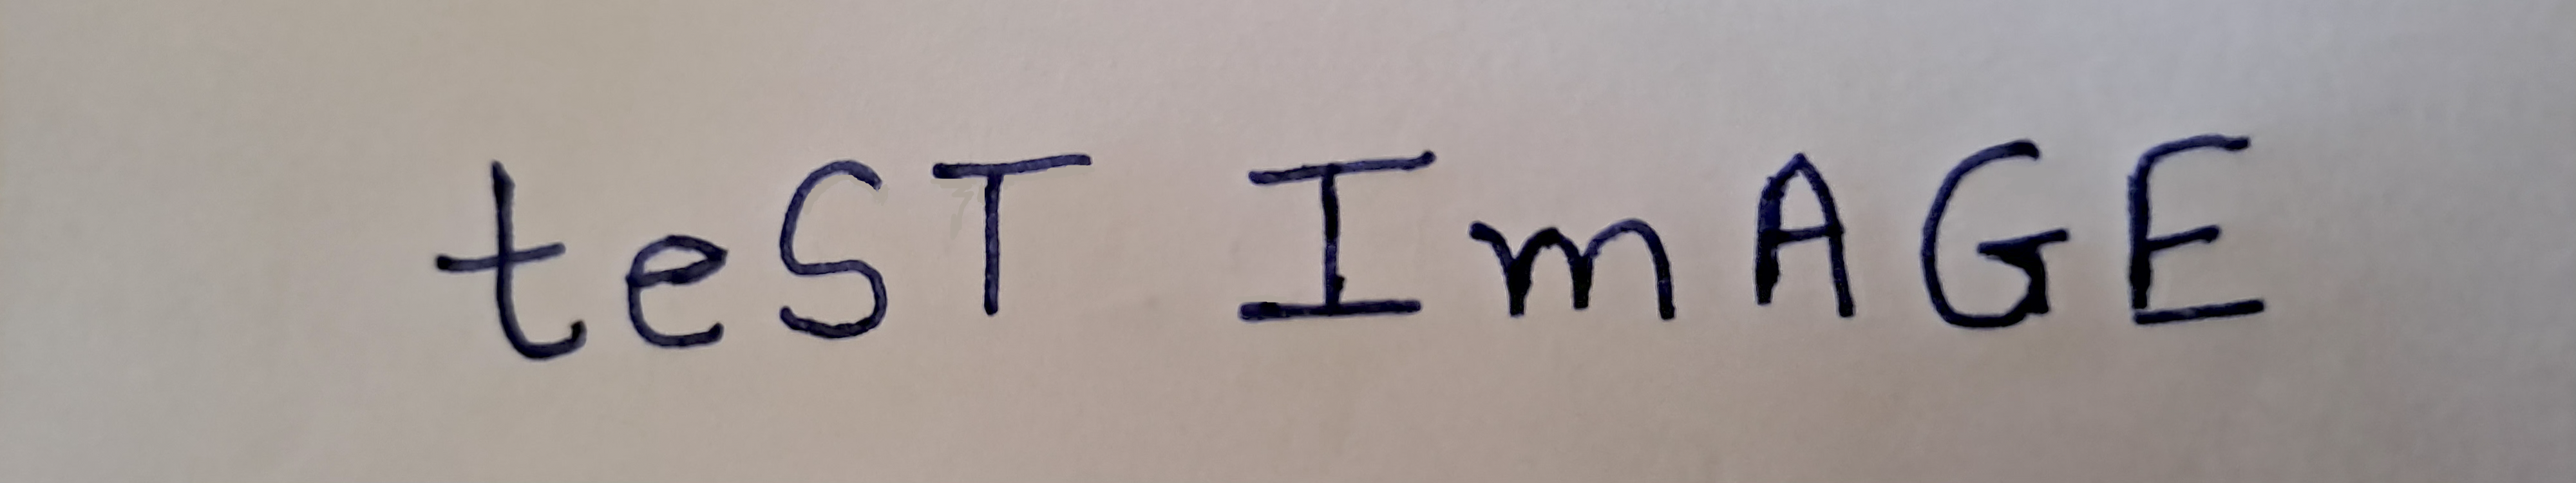 teST ImAGE